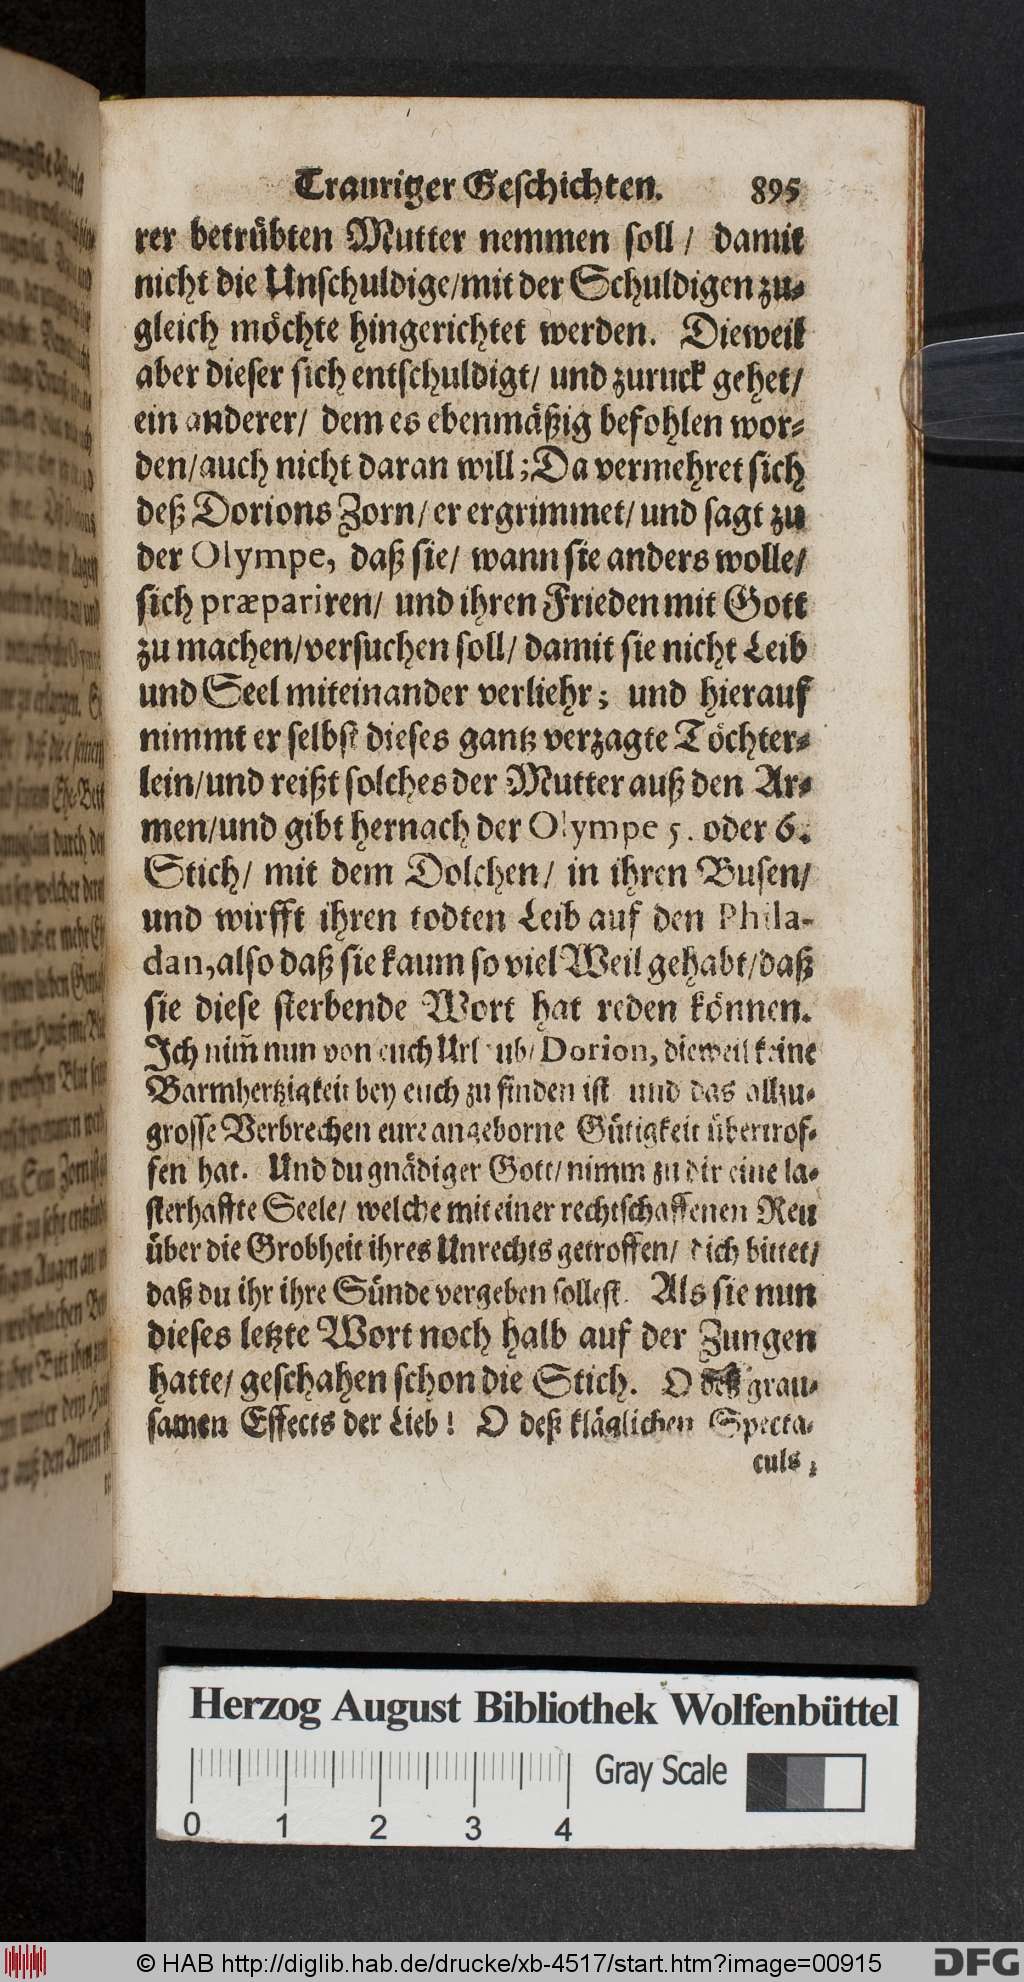 Trauriger Geschichten. 895
rer betrübten Mutter nemmen soll / damit
nicht die Unschuldige/mit der Schuldigen zu-
gleich möchte hingerichtet werden. Dieweil
aber dieser sich entschuldigt/ und zuruck gehet/
ein anderer/ dem es ebenmäßig befohlen wor-
den/auch nicht daran will; Da vermehret sich
deß Dorions Zorn/ er ergrimmet/ und sagt zu
der Olympe, daß sie/ wann sie anders wolle/
sich præpariren/ und ihren Frieden mit Gott
zu machen/versuchen soll/ damit sie nicht Leib
und Seel miteinander verliehr; und hierauf
nimmt er selbst dieses gantz verzagte Töchter-
lein/und reißt solches der Mutter auß den Ar-
men/und gibt hernach der Olympe 5. oder 6.
Stich/ mit dem Dolchen/ in ihren Busen/
und wirfft ihren todten Leib auf den Phila-
dan,also daß sie kaum so viel Weil gehabt/daß
sie diese sterbende Wort hat reden können.
Ich nim̄ nun von euch Urlaub/ Dorion, dieweil keine
Barmhertzigkeit bey euch zu finden ist und das allzu-
grosse Verbrechen eure angeborne Gütigkeit übertrof-
fen hat. Und du gnädiger Gott/ nimm zu dir eine la-
sterhaffte Seele/ welche mit einer rechtschaffenen Reu
über die Grobheit ihres Unrechts getroffen/ dich bittet/
daß du ihr ihre Sünde vergeben sollest. Als sie nun
dieses letzte Wort noch halb auf der Zungen
hatte/ geschahen schon die Stich. O deß grau-
samen Effects der Lieb! O deß kläglichen Specta-
culs;
Herzog August Bibliothek Wolfenbüttel
Gray Scale
0 1 2 3 4
© HAB http://diglib.hab.de/drucke/xb-4517/start.htm?image=00915
DFG